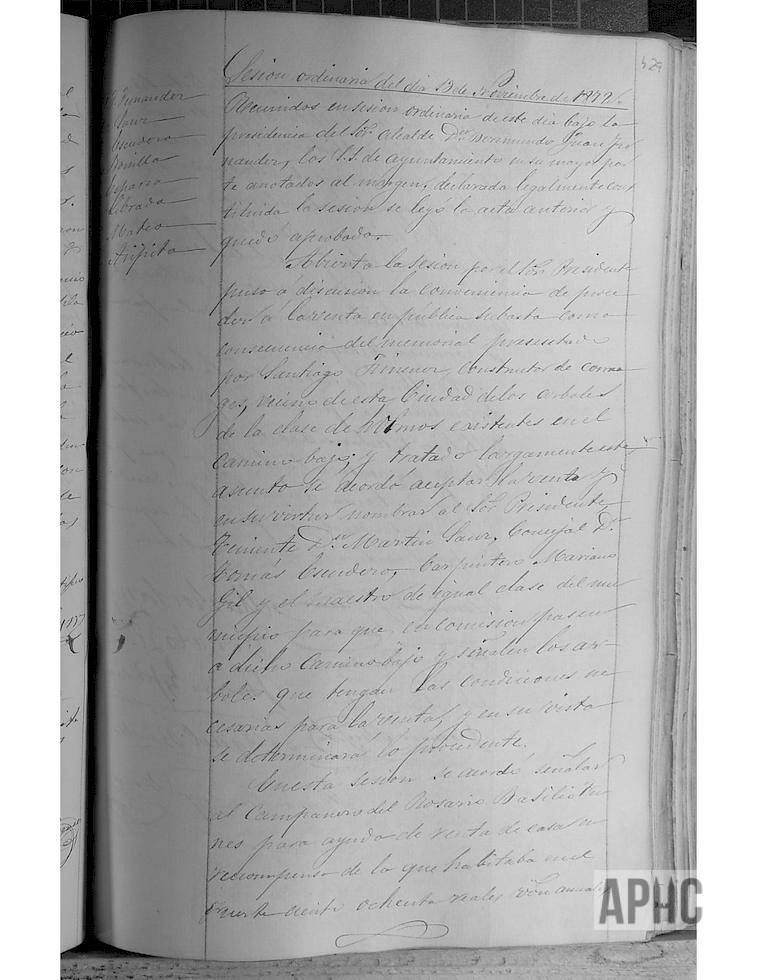 429
Sesion ordinaria del dia 13 de Noviembre de 1879.
Fernandez
Sanz
Escudero
Bonilla
Aparicio
Librada
Mateo
Azpeita
Reunidos en sesion ordinaria de este dia bajo la
presidencia del Sor. Alcalde Dn. Beremundo Juan Fer
nandez, los S.S. de ayuntamiento en su mayor par
te anotados al margen, declarada legalmente cons
tituida la sesion se leyó la acta anterior y
quedó aprobada.
Abierta la sesion por el Sor. Presidente
puso á discusion la conveniencia de proce
der á la venta en publica subasta como
consecuencia del memorial presentado
por Santiago Jimenez, constructor de carrua
ges, vecino de esta Ciudad de los arboles
de la clase de holmos existentes en el
camino bajo; y tratado largamente este
asunto se acordó aceptar la venta y
en su virtud nombrar al Sor. Presidente,
Teniente Dn. Martin Sanz, Concejal Dn.
Tomás Escudero, Carpintero Mariano
Gil y el maestro de igual clase del mu
nicipio para que en comision pasen
á dicho Camino bajo y señalen los ar-
boles que tengan las condiciones ne
cesarias para la venta, y en su vista
se determinará lo procedente.
En esta sesion se acordó señalar
al Campanero del Rosario Basilio
nes para ayuda de renta de casa en
recompensa de la que habitaba en el
fuerte ciento ochenta reales von. anuales
APHC